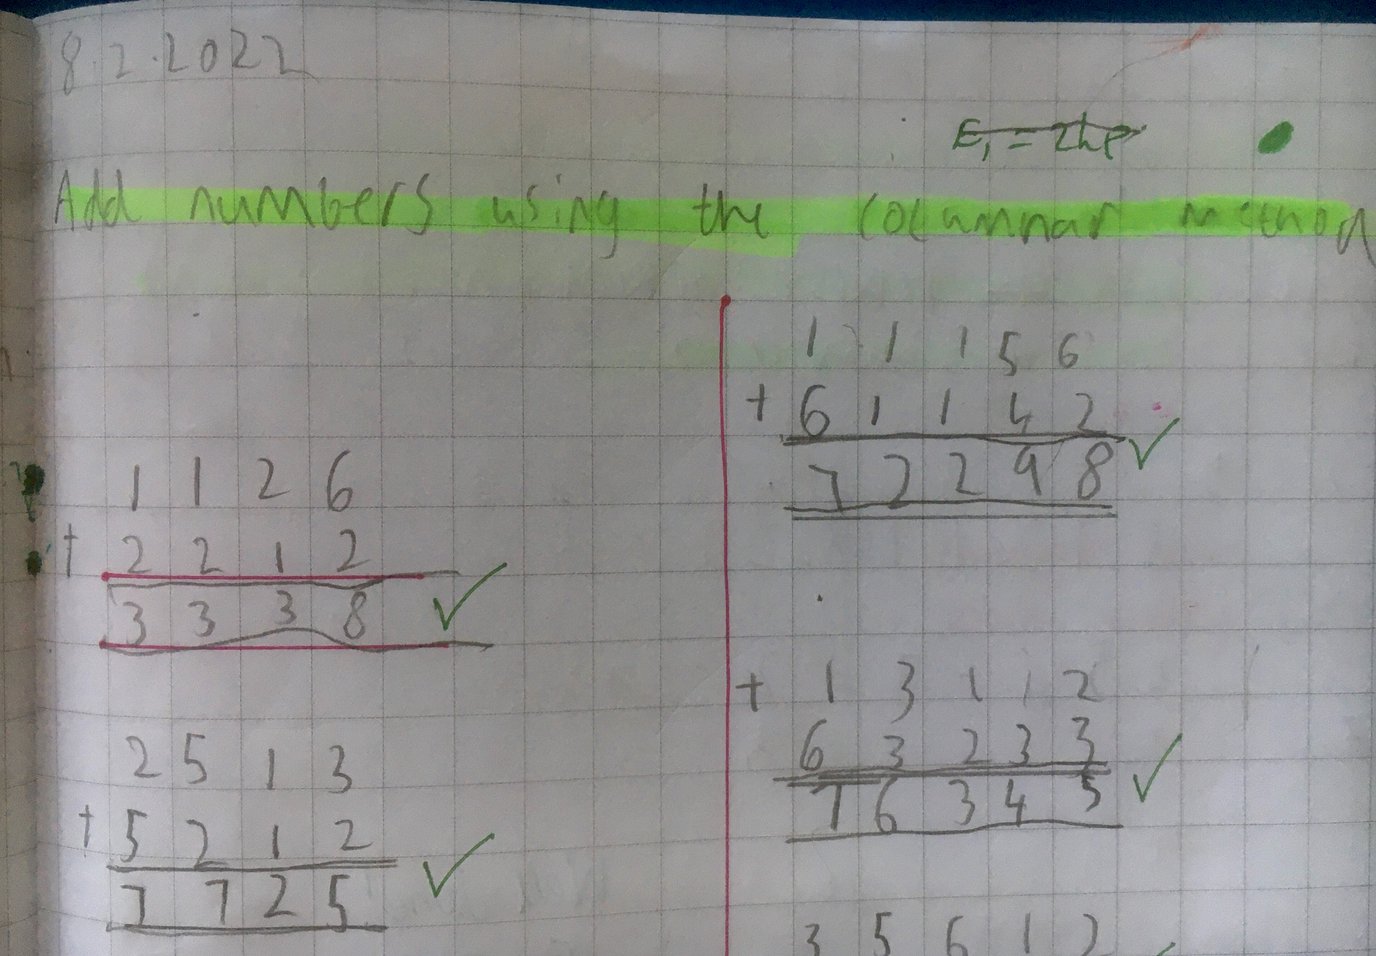 8.2.2022
E₁ = 2hp
Add numbers using the columnar method
1 1 2 6
+ 2 2 1 2
3 3 3 8
2 5 1 3
+ 5 2 1 2
7 7 2 5
1 1 1 5 6
+ 6 1 1 4 2
7 2 2 9 8
+ 1 3 1 1 2
6 3 2 3 3
7 6 3 4 5
3 5 6 1 2